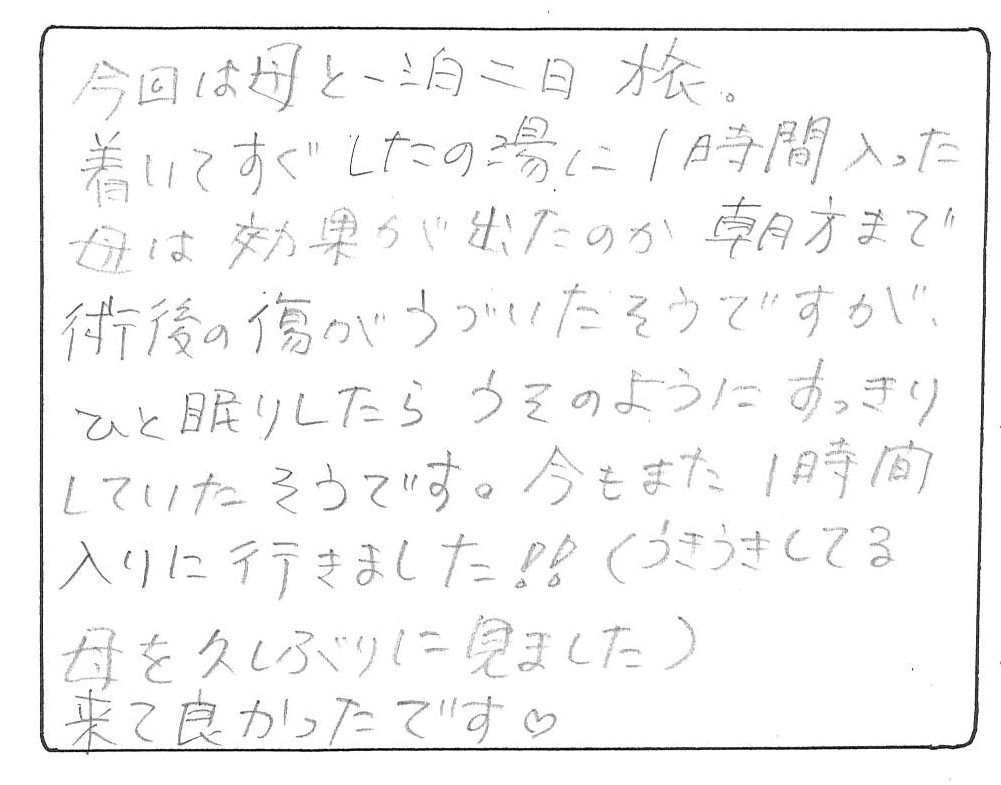 今回は母と一泊二日 旅。
着いてすぐ したの湯に 1時間入った
母は 効果が出たのか 朝方まで
術後の傷がうづいたそうですが、
ひと眠りしたら うそのように すっきり
していたそうです。今もまた 1時間
入りに行きました!! (うきうきしてる
母を久しぶりに見ました)
来て良かったです♡